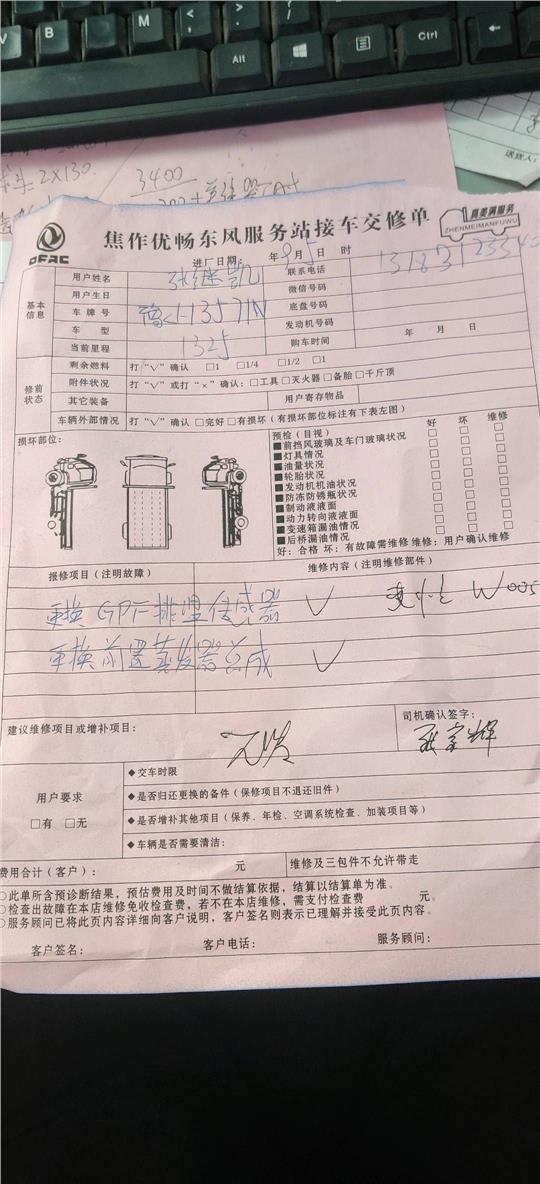 V
B
N
M
Alt
Ctrl
头2×130.
3400
送货人:
DFAC
焦作优畅东风服务站接车交修单
真美满服务
ZHENMEIMANFUWU
进厂日期: 年 9 月 5 日 时
基本信息
用户姓名 张继凯 联系电话
用户生日 微信号码
车牌号 底盘号码
车 型 发动机号码
当前里程 1325 购车时间 年 月 日
修前状态
剩余燃料 打“√”确认 □1 □1/4 □1/2 □1
附件状况 打“√”或打“×”确认:□工具□灭火器□备胎□千斤顶
其它装备 用户寄存物品
车辆外部情况 打“√”确认 □完好□有损坏(有损坏部位标注有下表左图)
损坏部位:
预检(目视) 好 坏 维修
■前挡风玻璃及车门玻璃状况 □ □ □
■灯具情况 □ □ □
■油量状况 □ □ □
■轮胎状况 □ □ □
■发动机机油状况 □ □ □
■防冻防锈瓶状况 □ □ □
■制动液液面 □ □ □
■动力转向液液面 □ □ □
■变速箱漏油情况 □ □ □
■后桥漏油情况 □ □ □
好:合格 坏:有故障需维修 维修:用户确认维修
报修项目(注明故障) 维修内容(注明维修部件)
更换GPF排温传感器 √ W005
更换前置蒸发器总成 √
建议维修项目或增补项目:
司机确认签字:
用户要求
□有 □无
◆交车时限
◆是否归还更换的备件(保修项目不退还旧件)
◆是否增补其他项目(保养、年检、空调系统检查、加装项目等)
◆车辆是否需要清洁:
费用合计(客户): 元 维修及三包件不允许带走
○此单所含预诊断结果,预估费用及时间不做结算依据,结算以结算单为准。
○检查出故障在本店维修免收检查费,若不在本店维修,需支付检查费 元。
○服务顾问已将此页内容详细向客户说明,客户签名则表示已理解并接受此页内容。
客户签名: 客户电话: 服务顾问: